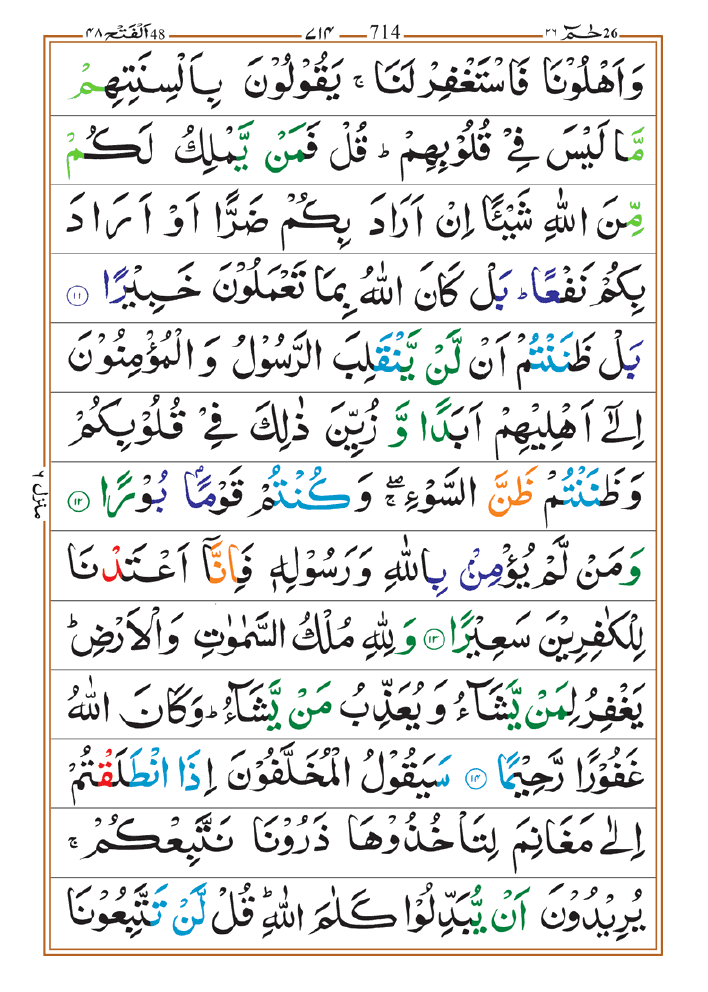 48 اَلْفَتْح ٤٨ 714 ٧١٤ حٰمٓ 26 ٢٦
وَاَهْلُوْنَا فَاسْتَغْفِرْ لَنَا ۚ يَقُوْلُوْنَ بِاَلْسِنَتِهِمْ
مَّا لَيْسَ فِيْ قُلُوْبِهِمْ ؕ قُلْ فَمَنْ يَّمْلِكُ لَكُمْ
مِّنَ اللّٰهِ شَيْـًٔا اِنْ اَرَادَ بِكُمْ ضَرًّا اَوْ اَرَادَ
بِكُمْ نَفْعًا ؕ بَلْ كَانَ اللّٰهُ بِمَا تَعْمَلُوْنَ خَبِيْرًا ۱۱
بَلْ ظَنَنْتُمْ اَنْ لَّنْ يَّنْقَلِبَ الرَّسُوْلُ وَ الْمُؤْمِنُوْنَ
اِلٰۤى اَهْلِيْهِمْ اَبَدًا وَّ زُيِّنَ ذٰلِكَ فِيْ قُلُوْبِكُمْ
وَظَنَنْتُمْ ظَنَّ السَّوْءِ ۖۚ وَكُنْتُمْ قَوْمًۢا بُوْرًا ۱۲
وَمَنْ لَّمْ يُؤْمِنْ بِاللّٰهِ وَرَسُوْلِهٖ فَاِنَّاۤ اَعْتَدْنَا
لِلْكٰفِرِيْنَ سَعِيْرًا ۱۳ وَلِلّٰهِ مُلْكُ السَّمٰوٰتِ وَالْاَرْضِ ؕ
يَغْفِرُ لِمَنْ يَّشَآءُ وَ يُعَذِّبُ مَنْ يَّشَآءُ ؕ وَكَانَ اللّٰهُ
غَفُوْرًا رَّحِيْمًا ۱۴ سَيَقُوْلُ الْمُخَلَّفُوْنَ اِذَا انْطَلَقْتُمْ
اِلٰى مَغَانِمَ لِتَاْخُذُوْهَا ذَرُوْنَا نَتَّبِعْكُمْ ۚ
يُرِيْدُوْنَ اَنْ يُّبَدِّلُوْا كَلٰمَ اللّٰهِ ؕ قُلْ لَّنْ تَتَّبِعُوْنَا
منزل ۶